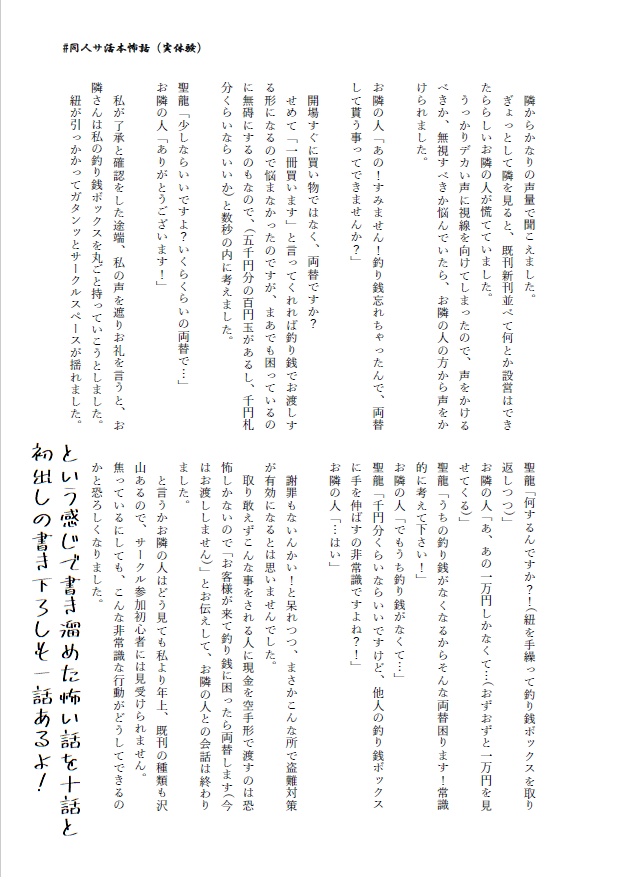 #同人サ活本怖話（実体験）
隣からかなりの声量で聞こえました。
ぎょっとして隣を見ると、既刊新刊並べて何とか設営はでき
たたらしいお隣の人が慌てていました。
うっかりデカい声に視線を向けてしまったので、声をかける
べきか、無視すべきか悩んでいたら、お隣の人の方から声をか
けられました。
お隣の人「あの！すみません！釣り銭忘れちゃったんで、両替
して貰う事ってできませんか？」
開場すぐに買い物ではなく、両替ですか？
せめて「一冊買います」と言ってくれれば釣り銭でお渡しす
る形になるので悩まなかったのですが、まあでも困っているの
に無碍にするのもなので、（五千円分の百円玉があるし、千円札
分くらいならいいか）と数秒の内に考えました。
聖龍「少しならいいですよ？いくらくらいの両替で…」
お隣の人「ありがとうございます！」
私が了承と確認をした途端、私の声を遮りお礼を言うと、お
隣さんは私の釣り銭ボックスを丸ごと持っていこうとしました。
紐が引っかかってガタンッとサークルスペースが揺れました。
聖龍「何するんですか？！（紐を手繰って釣り銭ボックスを取り
返しつつ）」
お隣の人「あ、あの一万円しかなくて…（おずおずと一万円を見
せてくる）」
聖龍「うちの釣り銭がなくなるからそんな両替困ります！常識
的に考えて下さい！」
お隣の人「でもうち釣り銭がなくて…」
聖龍「千円分くらいならいいですけど、他人の釣り銭ボックス
に手を伸ばすの非常識ですよね？！」
お隣の人「…はい」
謝罪もないんかい！と呆れつつ、まさかこんな所で盗難対策
が有効になるとは思いませんでした。
取り敢えずこんな事をされる人に現金を空手形で渡すのは恐
怖しかないので「お客様が来て釣り銭に困ったら両替します（今
はお渡ししません）」とお伝えして、お隣の人との会話は終わり
ました。
と言うかお隣の人はどう見ても私より年上、既刊の種類も沢
山あるので、サークル参加初心者には見受けられません。
焦っているにしても、こんな非常識な行動がどうしてできるの
かと恐ろしくなりました。
という感じで書き溜めた怖い話を十話と
初出しの書き下ろしも一話あるよ！